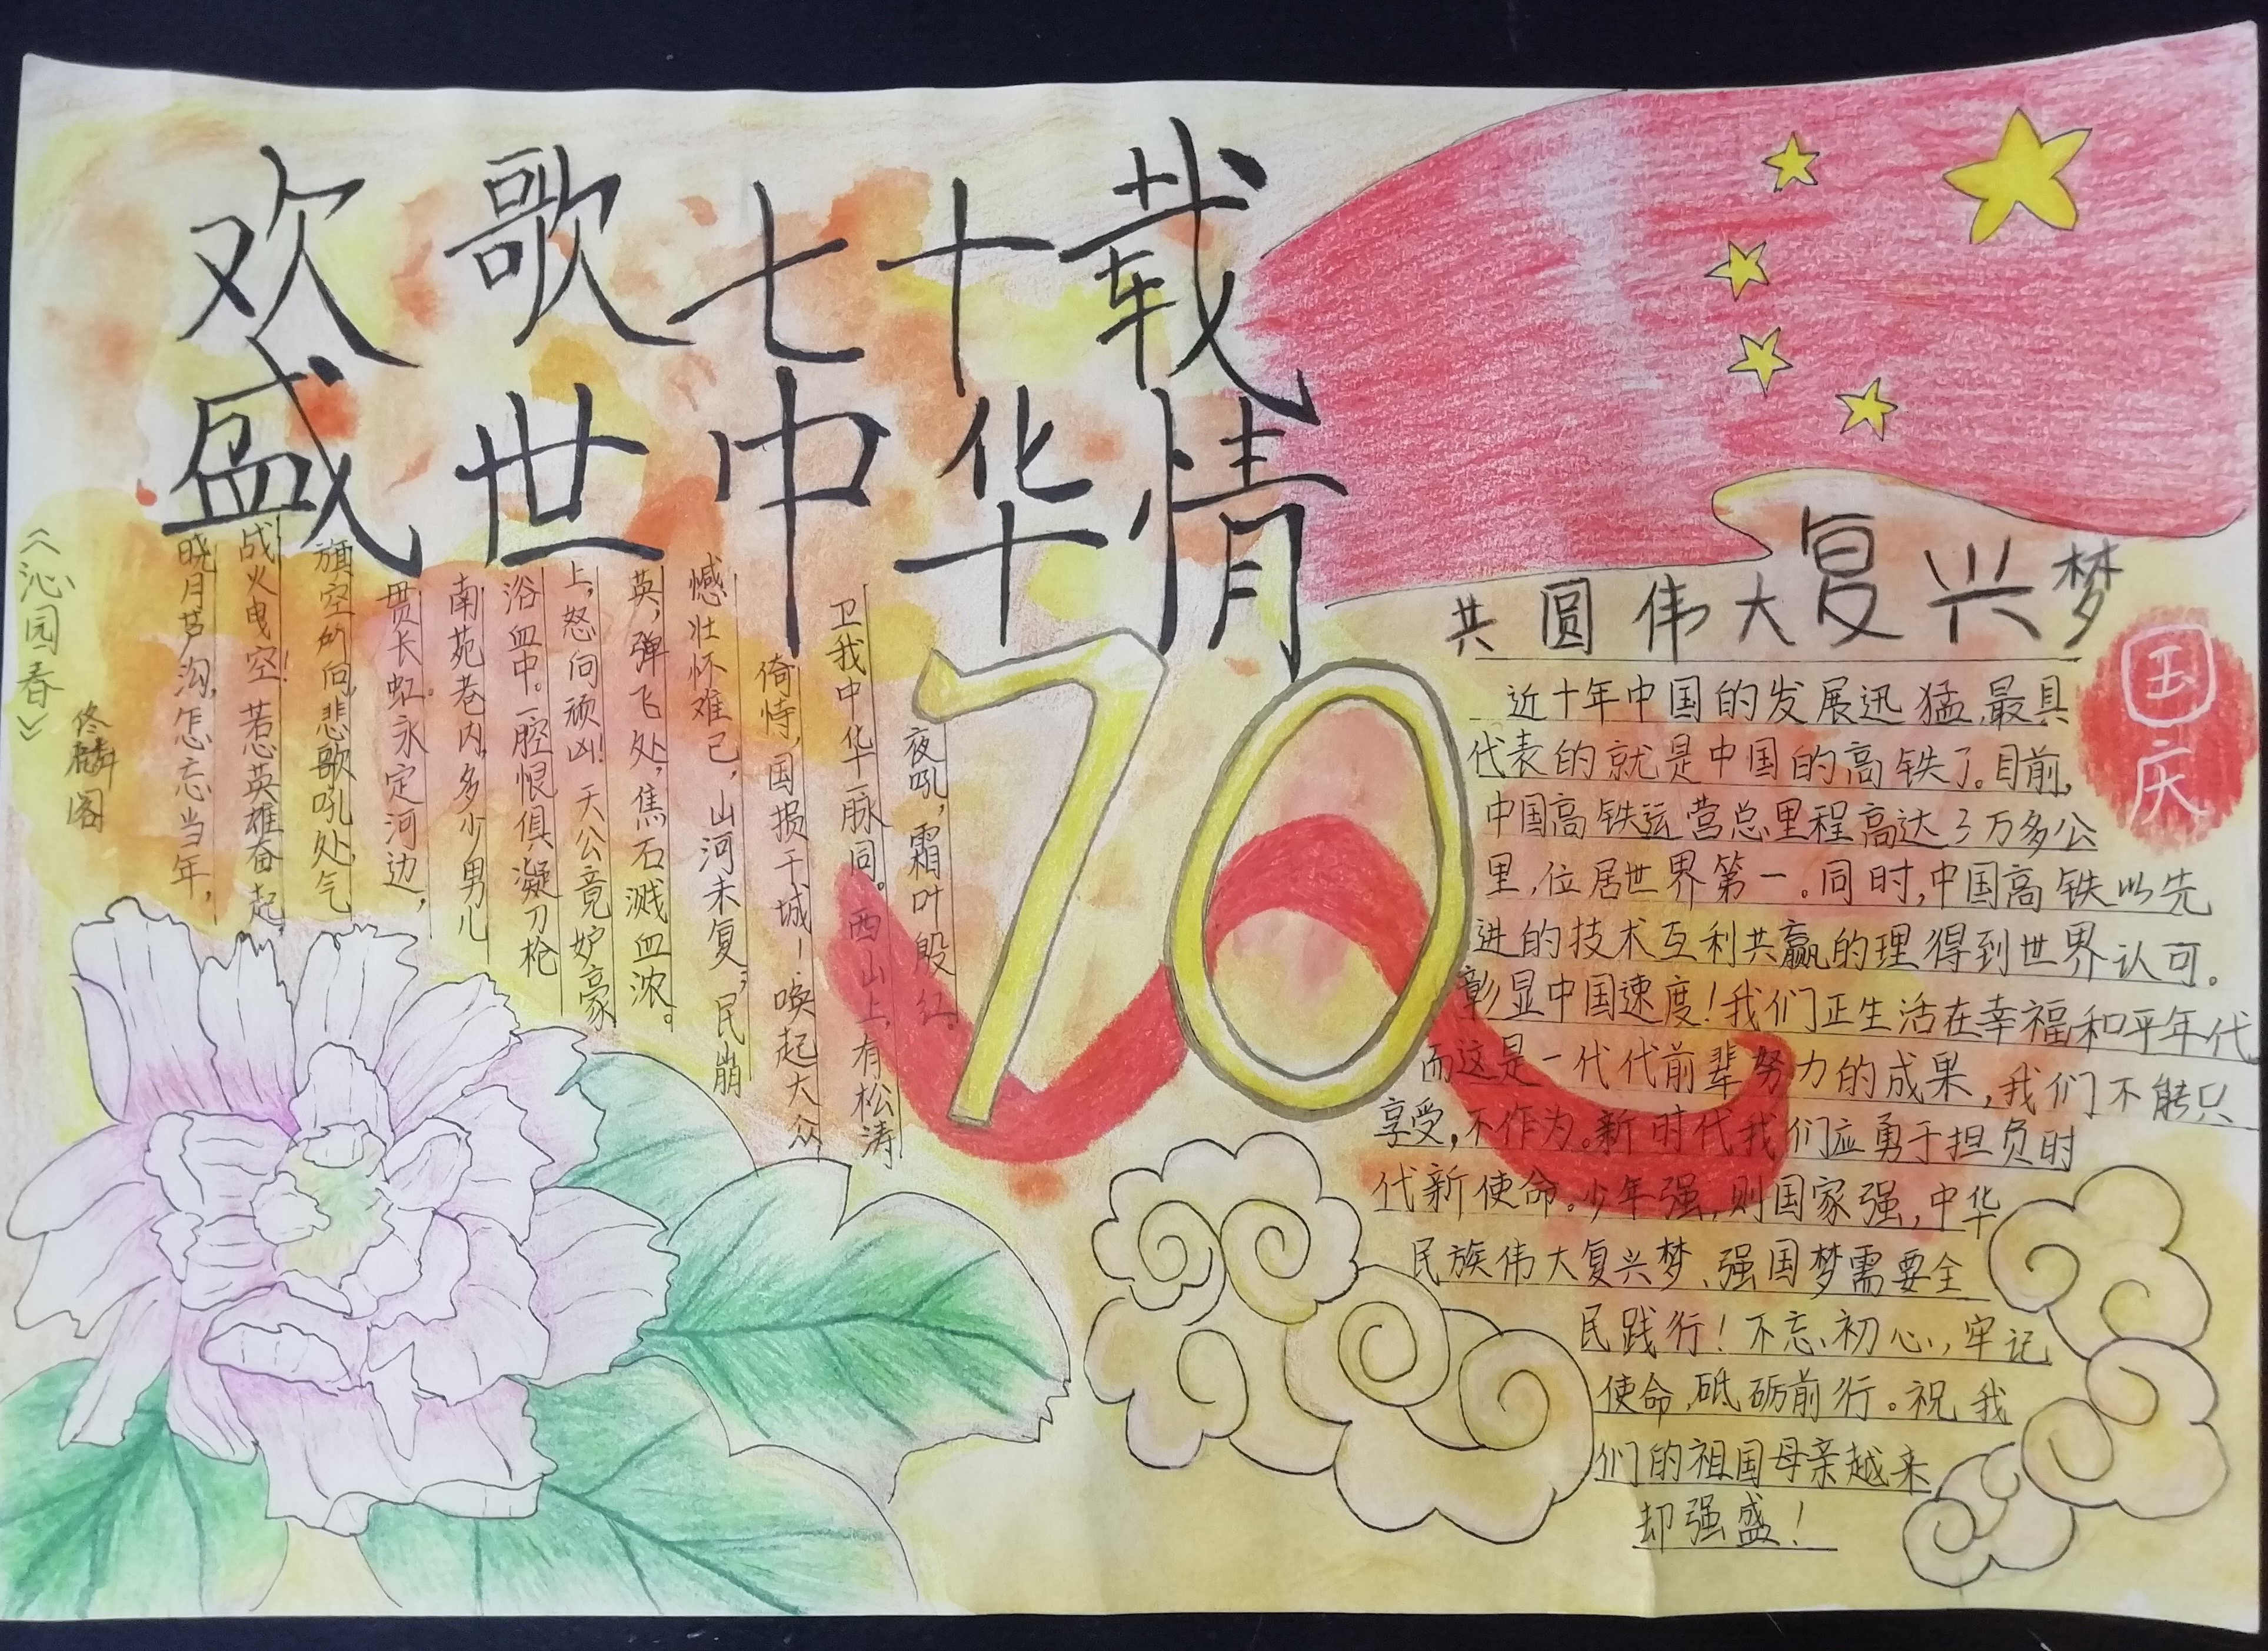 欢歌七十载
盛世中华情
《沁园春》
佟麟阁
晓月芦沟,怎忘当年,
战火曳空!若惹英雄奋起,
旗空所向,悲歌吼处,气
贯长虹。永定河边,
南苑巷内,多少男儿
浴血中。一腔恨俱凝刀枪
上,怒向顽凶!天公竟妒豪
英,弹飞处,焦石溅血浓。
憾壮怀难已,山河未复,民崩
倚恃,国损干城!唤起大众
卫我中华一脉同。西山上,有松涛
夜吼,霜叶殷红。
70
共圆伟大复兴梦
国庆
近十年中国的发展迅猛,最具
代表的就是中国的高铁了。目前,
中国高铁运营总里程高达3万多公
里,位居世界第一。同时,中国高铁以先
进的技术互利共赢的理得到世界认可。
彰显中国速度!我们正生活在幸福和平年代
而这是一代代前辈努力的成果,我们不能只
享受,不作为。新时代我们应勇于担负时
代新使命。少年强,则国家强,中华
民族伟大复兴梦、强国梦需要全
民践行!不忘初心,牢记
使命,砥砺前行。祝我
们的祖国母亲越来
却强盛!